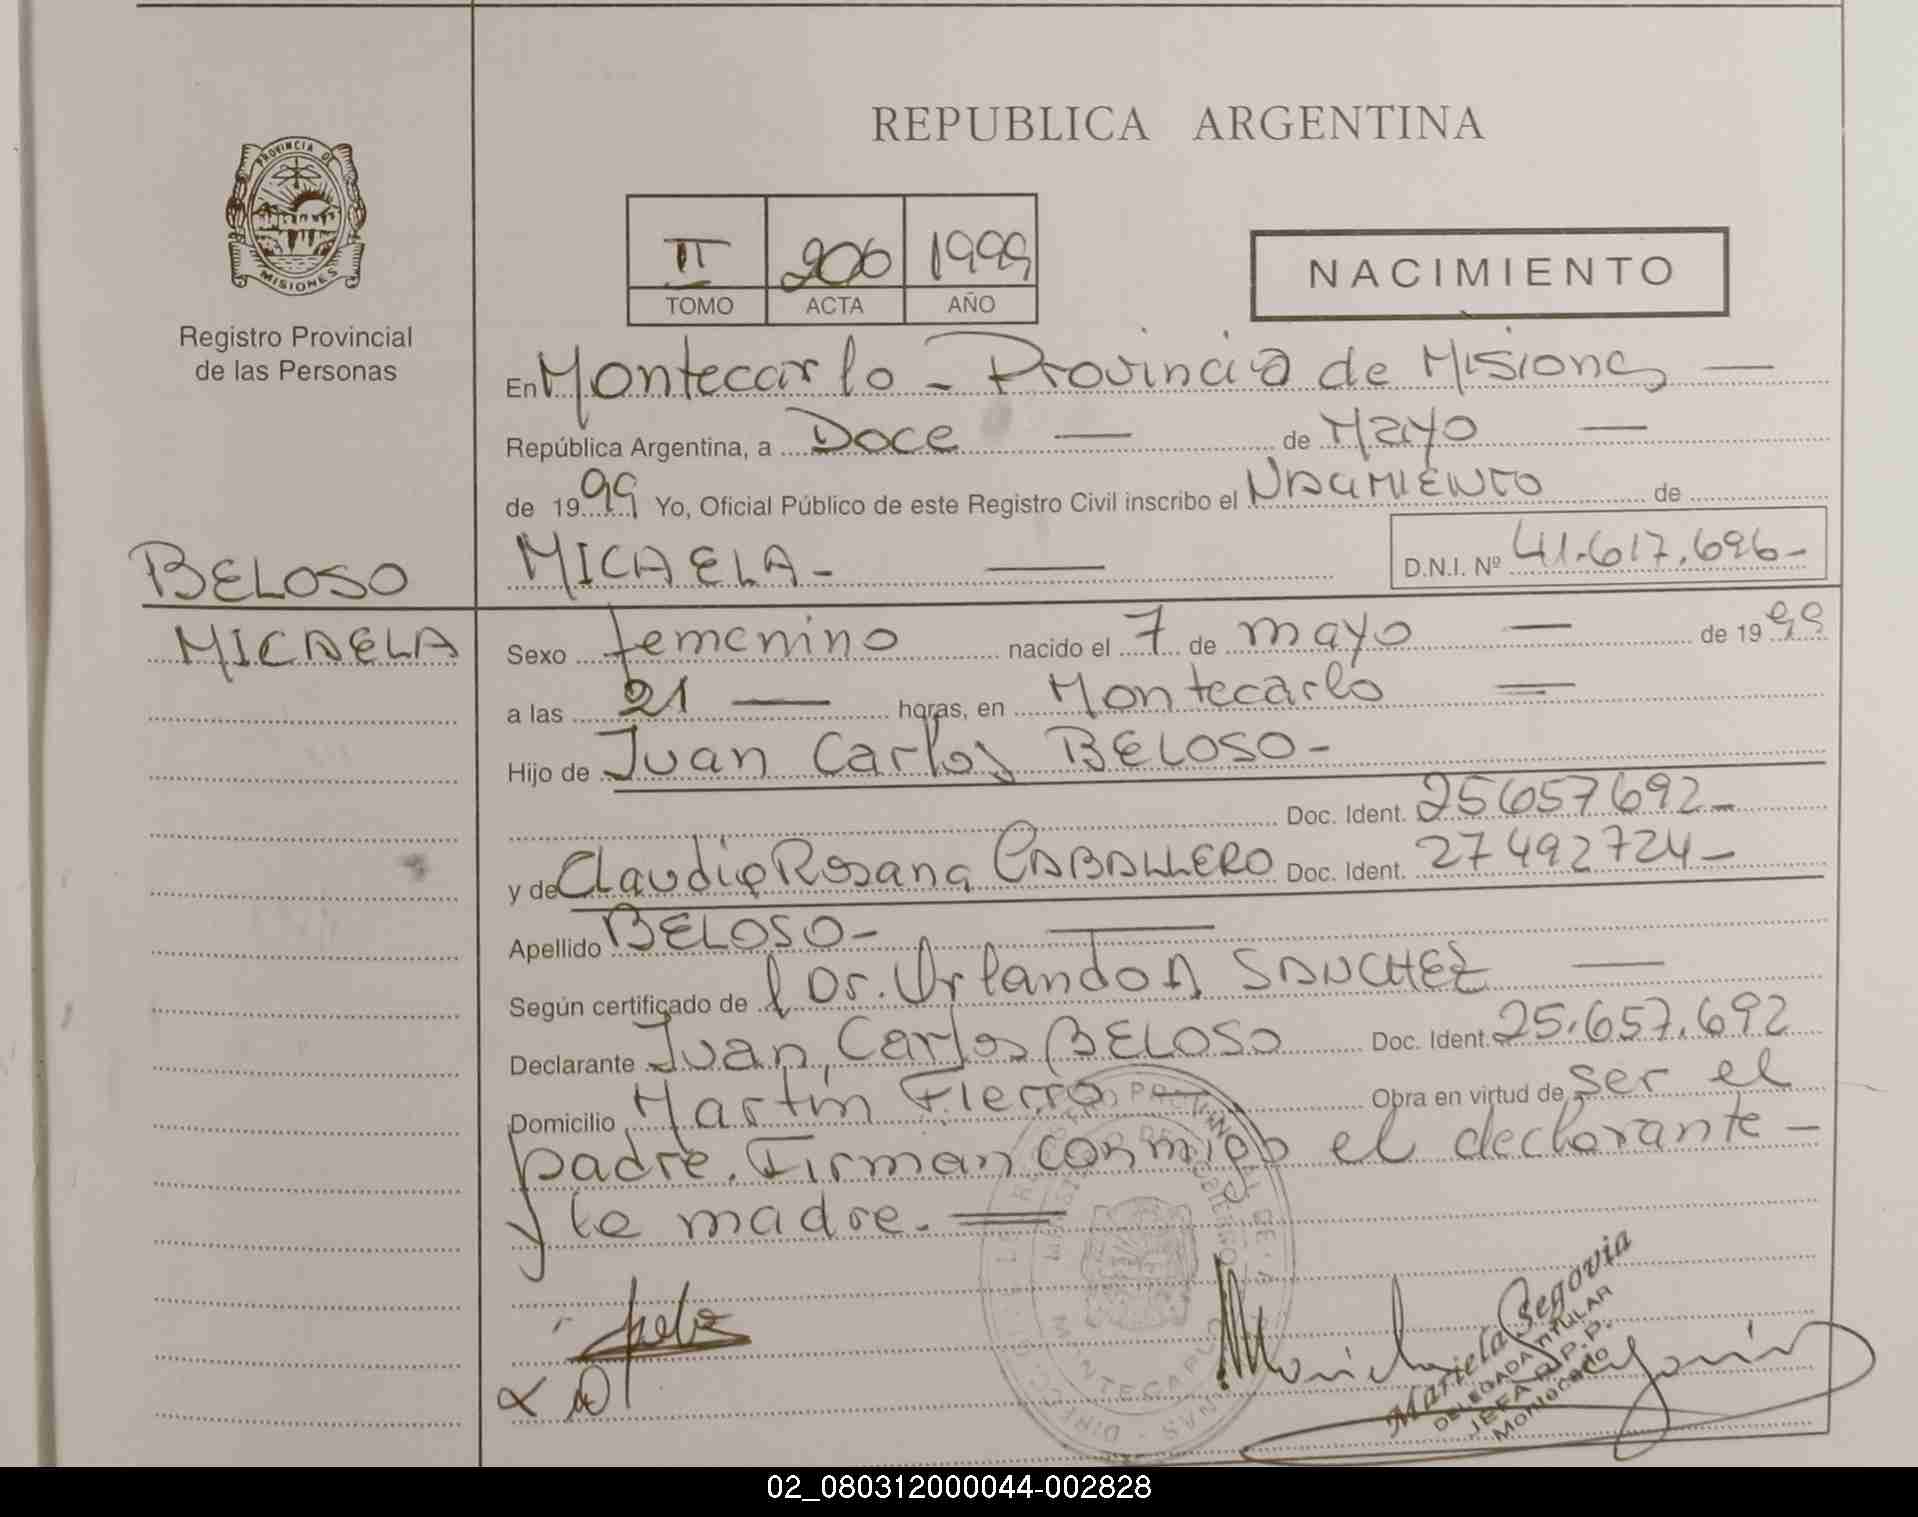 REPUBLICA ARGENTINA
PROVINCIA DE
MISIONES
Registro Provincial
de las Personas
II 206 1999
TOMO ACTA AÑO
NACIMIENTO
En Montecarlo - Provincia de Misiones —
República Argentina, a Doce — de Mayo —
de 1999 Yo, Oficial Público de este Registro Civil inscribo el Nacimiento de
BELOSO
MICAELA - — D.N.I. Nº 41.617.696-
MICAELA
Sexo femenino nacido el 7 de mayo — de 1999
a las 21 — horas, en Montecarlo =
Hijo de Juan Carlos BELOSO -
Doc. Ident. 25657692-
y de Claudia Rosana CABALLERO Doc. Ident. 27492724-
Apellido BELOSO - —
Según certificado de Dr. Orlando A SANCHEZ —
Declarante Juan Carlos BELOSO Doc. Ident. 25.657.692
Domicilio Martín Fierro — Obra en virtud de ser el
padre. Firman conmigo el declarante -
y la madre. =
Mariela Segovia
DELEGADA TITULAR
JEFA R.P.P.
Montecarlo
02_080312000044-002828